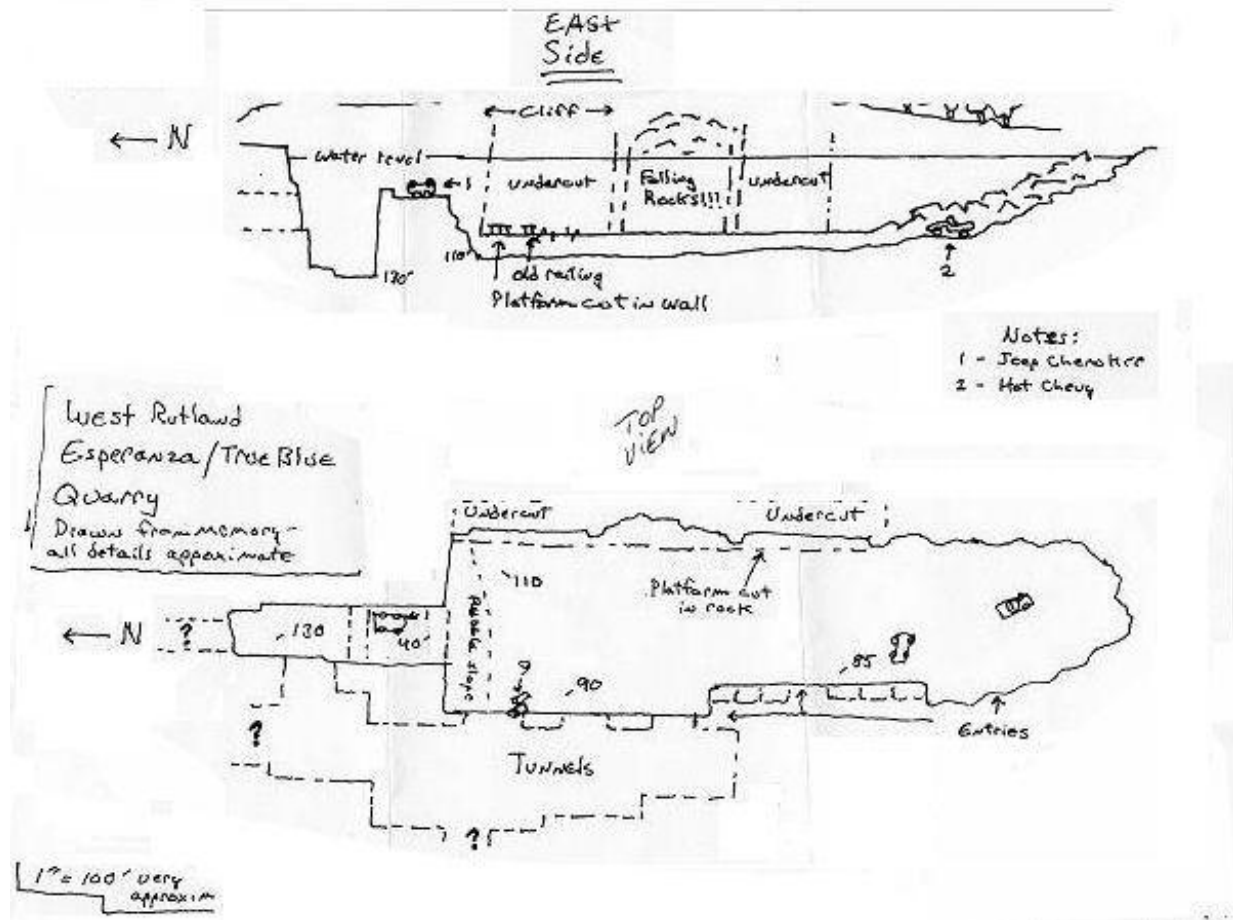 EAST
Side
← Cliff →
← N
Water level
← 1
Undercut
Falling
Rocks!!!
Undercut
110'
130'
old railing
Platform cut in wall
2
Notes:
1 - Jeep Cherokee
2 - Hot Chevy
West Rutland
Esperanza/True Blue
Quarry
Drawn from memory-
all details approximate
TOP
VIEW
Undercut
Undercut
110
Platform cut
in rock
← N
?
130
40'
slope
?
90
85
Entries
?
Tunnels
?
1" = 100' very
approxim